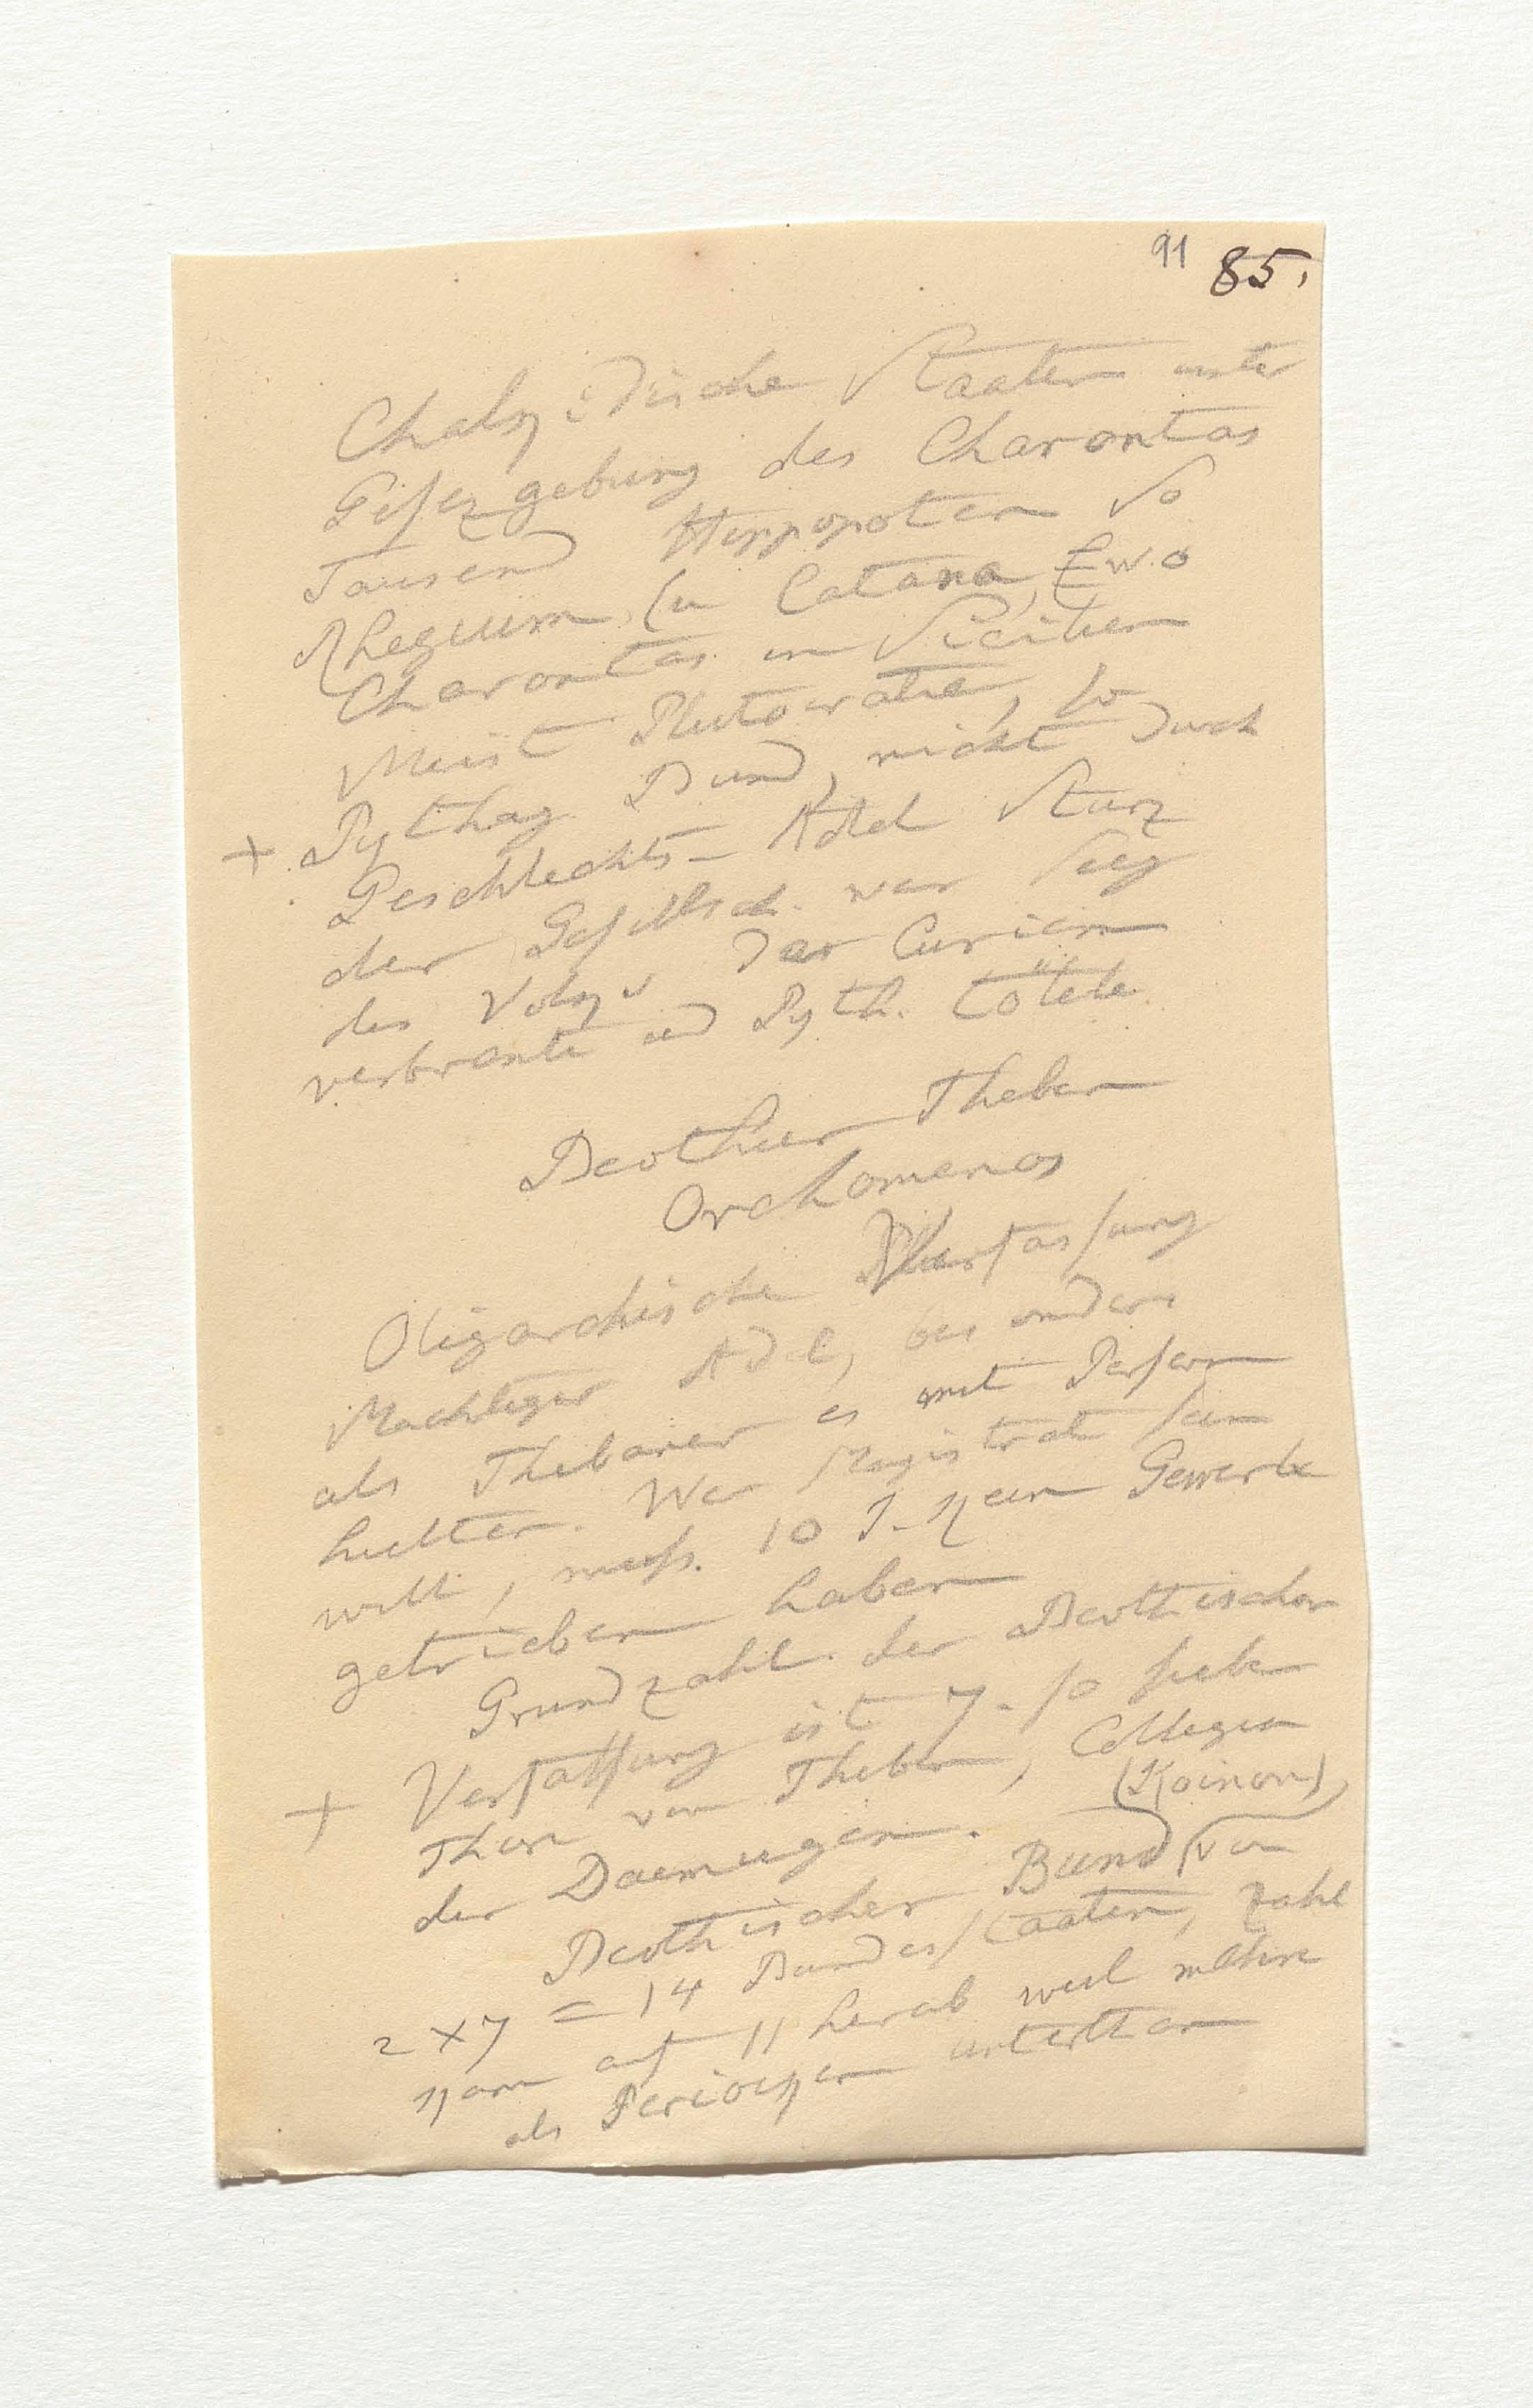 91 85.
Chalzidische Staaten unter
Gesezgebung des Charontas
Tausend Hippopoten So
Rhegium, (u Catana, Ew.o
Charontas in Sicilien
Meist Plutocratie, so
+ Pythag. Bund, nicht durch
Geschlechts-Adel Sturz
der Gesellsch. war Sieg
des Volzs Das Curien
verbrante und Pyth. tötete
Beothier Theben
Orchomenos
Oligarchische Verfassung
Machtiger Adel, besonders
als Thebaner es mit Persern
hielten. Wer Magistrat sein
will, muss. 10 J. kein Gewerbe
getrieben haben
Grundzahl der Beothischen
+ Verfassung ist 7. so sieben
Thore von Theben, Collegien
der Daemurgen. (Koinon),
Beothischer Bund von
2 x 7 = 14 Bundesstaaten, Zahl
kam auf 11 herab weil mehre
als Perioeken unterthan